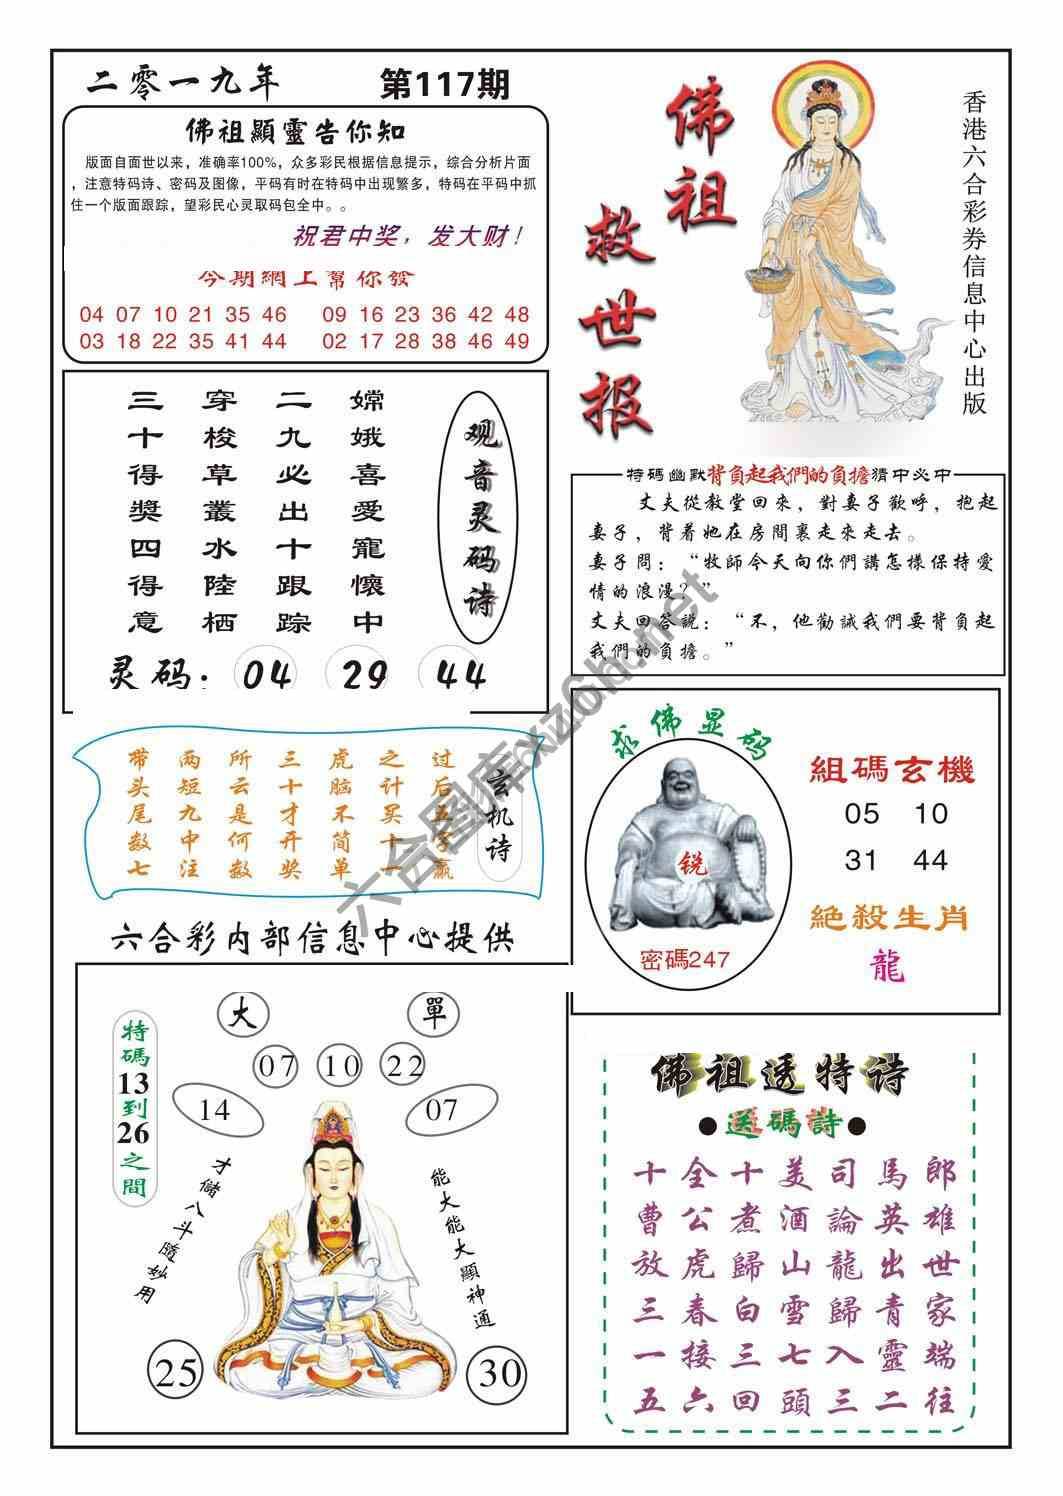 二零一九年 第117期
佛祖顯靈告你知
版面自面世以来，准确率100%，众多彩民根据信息提示，综合分析片面
，注意特码诗、密码及图像，平码有时在特码中出现繁多，特码在平码中抓
住一个版面跟踪，望彩民心灵取码包全中。。
祝君中奖，发大财！
今期網上幫你發
04 07 10 21 35 46 09 16 23 36 42 48
03 18 22 35 41 44 02 17 28 38 46 49
佛祖
救世报
香港六合彩券信息中心出版
观音灵码诗
嫦娥喜愛寵懷中
二九必出十跟踪
穿梭草叢水陸栖
三十得獎四得意
灵码：04 29 44
特碼幽默背負起我們的負擔猜中必中
丈夫從教堂回來，對妻子歡呼，抱起
妻子，背着她在房間裏走來走去。
妻子問：“牧師今天向你們講怎樣保持愛
情的浪漫？”
丈夫回答説：“不，他勸誡我們要背負起
我們的負擔。”
玄机诗
过后五字赢
之计买十一
虎脑不简单
三十才开奖
所云是何数
两短九中注
带头尾数七
求佛显码
锐
密碼247
組碼玄機
05 10
31 44
絕殺生肖
龍
六合彩内部信息中心提供
大 單
07 10 22
14 07
特碼13到26之間
才儲八斗隨妙用
能大能大顯神通
25 30
佛祖透特诗
●送碼詩●
郎雄世家端往
馬英出青靈二
司論龍歸入三
美酒山雪七頭
十煮歸白三回
全公虎春接六
十曹放三一五
六合图库xz6h.net